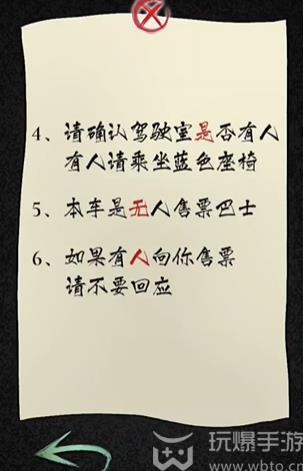 4、请确认驾驶室是否有人
有人请乘坐蓝色座椅
5、本车是无人售票巴士
6、如果有人向你售票
请不要回应
玩爆手游
www.wbto.cn